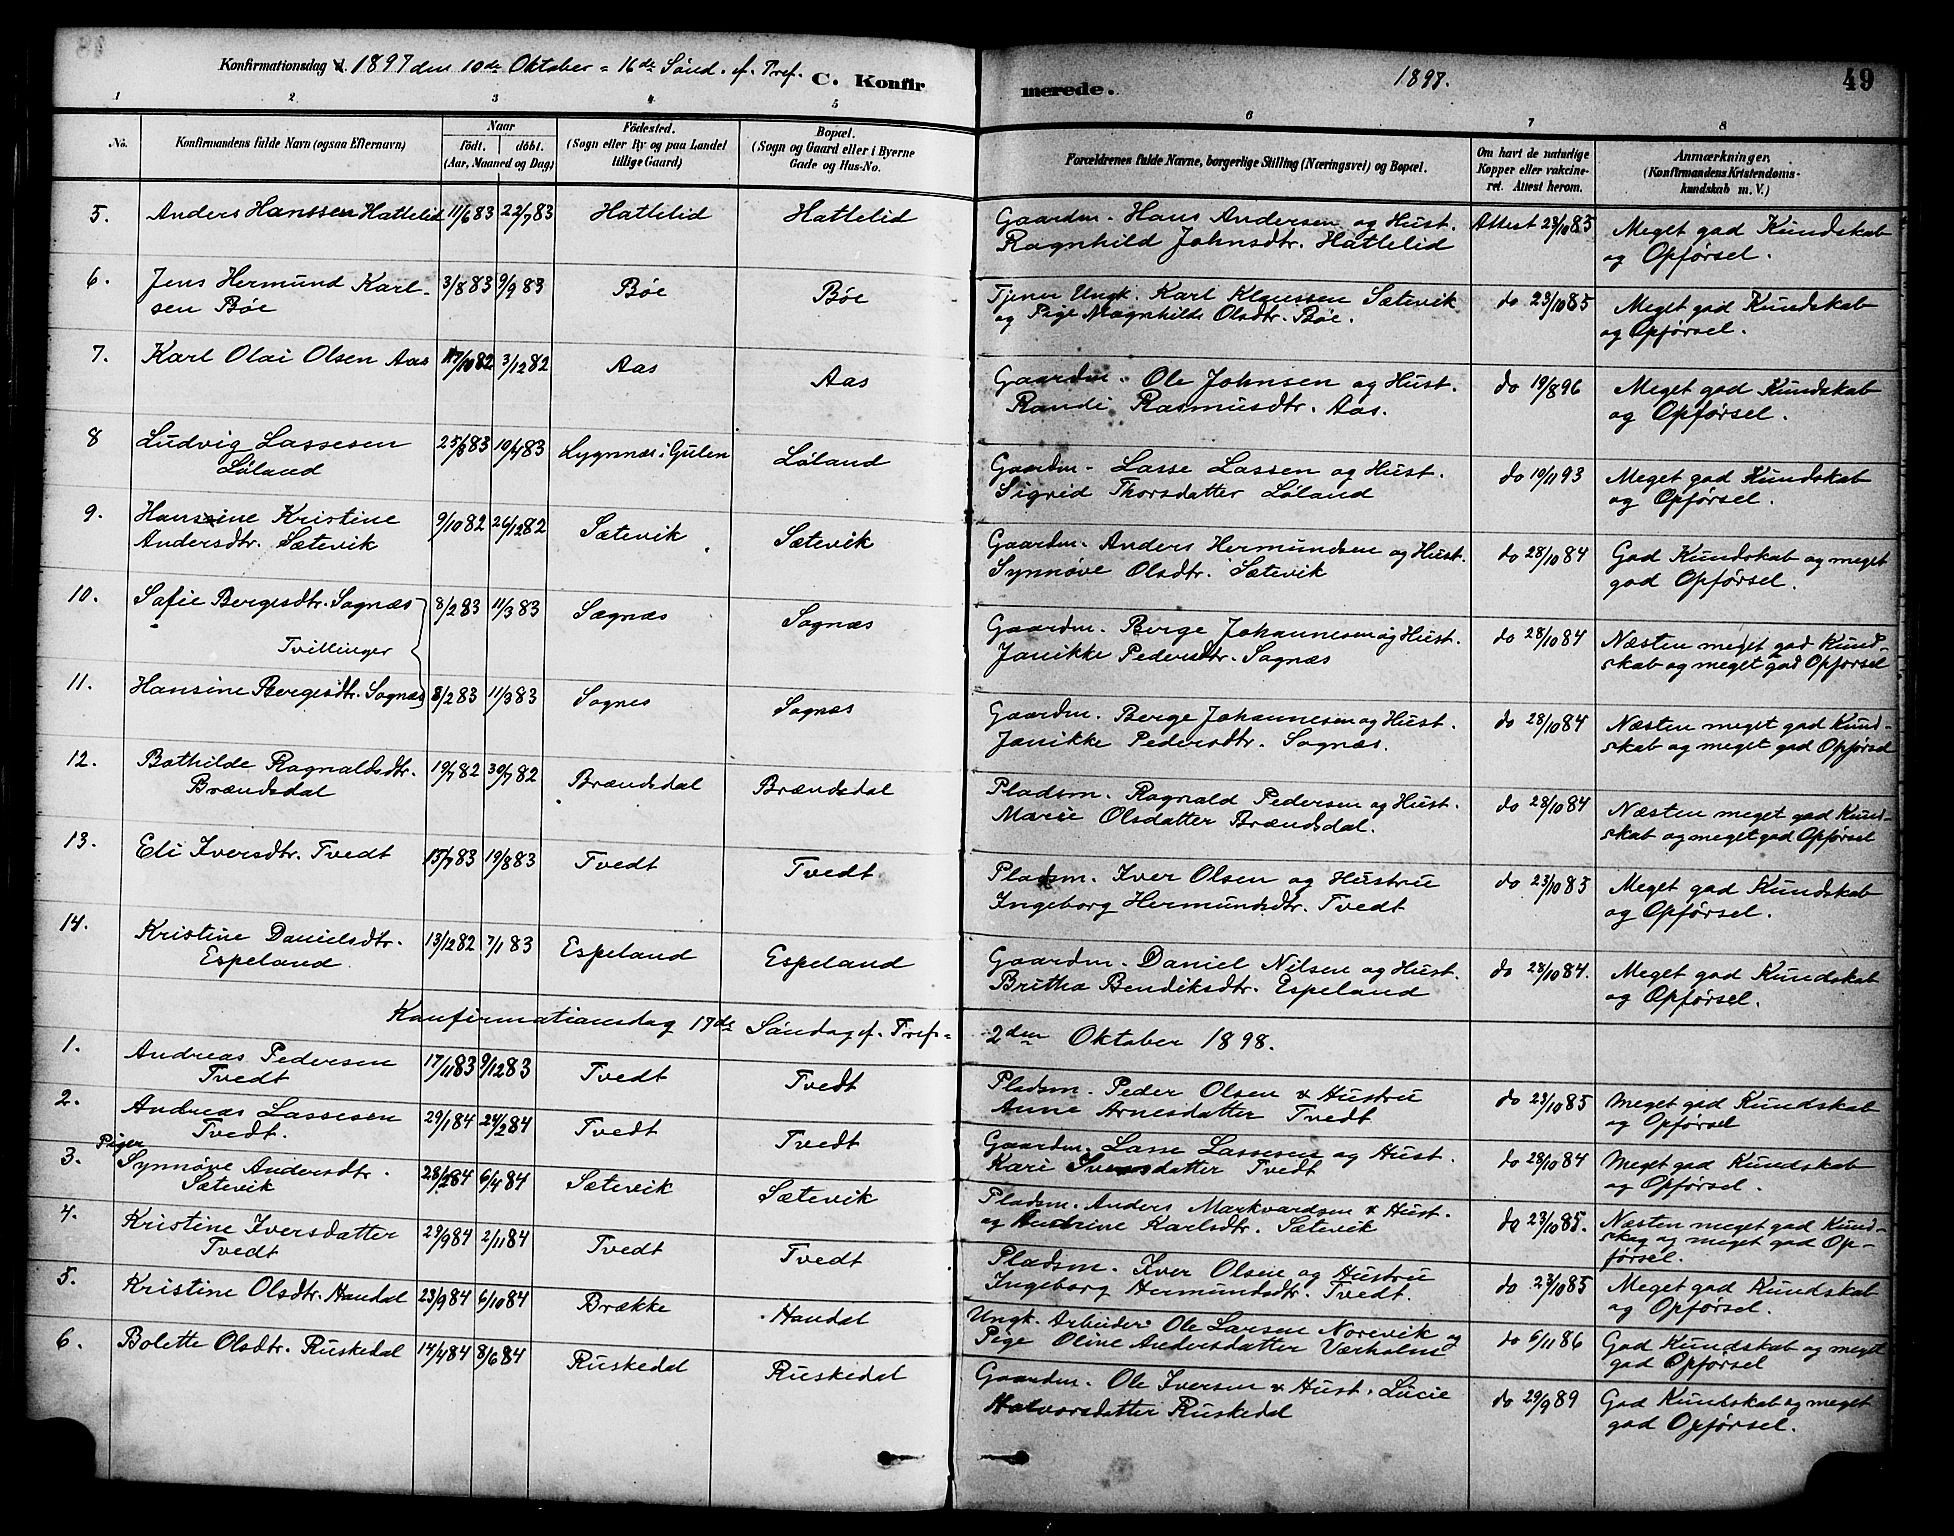 Konfirmationsdag d. 1897 den 10de Oktober = 16de Sönd. ef. Tref.
C. Konfir
merede.
1897.
49
1 2 3 4 5 6 7 8
No.
Konfirmandens fulde Navn (ogsaa Efternavn)
Naar
födt. döbt.
(Aar, Maaned og Dag)
Födested.
(Sogn eller By og paa Landet tillige Gaard)
Bopæl.
(Sogn og Gaard eller i Byerne Gade og Hus-No.
Forældrenes fulde Navne, borgerlige Stilling (Næringsvei) og Bopæl.
Om havt de naturlige Kopper eller vaksineret. Attest herom.
Anmærkninger.
(Konfirmandens Kristendomskundskab m. V.)
5. Anders Hanssen Hattelid 11/6 83 22/7 83 Hattelid Hattelid Gaardm. Hans Andersen og Hust. Attest 23/10 85 Meget god Kundskab
Ragnhild Johnsdtr. Hattelid og Opførsel.
6. Jens Hermund Karl- 3/8 83 9/9 83 Bøe Bøe Tjener Ungk. Karl Klaussen Sætevik do 23/10 85 Meget god Kundskab
sen Bøe og Pige Magnhilde Olsdtr. Bøe. og Opførsel.
7. Karl Olai Olsen Aas 17/10 82 3/12 82 Aas Aas Gaardm. Ole Johnsen og Hust. do 19/8 96 Meget god Kundskab
Randi Rasmusdtr. Aas. og Opførsel.
8 Ludvig Lassesen 10/7 83 Lygnnæs i Gulen Løland Gaardm. Lasse Lassen og Hust. do 10/11 93 Meget god Kundskab
Løland Sigrid Thorsdatter Løland og Opførsel.
9. Hansine Kristine 9/10 82 26/12 82 Sætevik Sætevik Gaardm. Anders Hermundsen og Hust. do 28/10 84 God Kundskab og meget
Andersdtr. Sætevik Synnøve Olsdtr. Sætevik god Opførsel.
10. Safie Bergesdtr. Sognæs 8/2 83 11/3 83 Sognæs Sognæs Gaardm. Berge Johannesen og Hust. do 28/10 84 Næsten meget god Kund-
Tvillinger Janikke Pedersdtr. Sognæs skab og meget god Opførsel
11. Hansine Bergesdtr. Sognæs 8/2 83 11/3 83 Sognes Sognæs Gaardm. Berge Johannesen og Hust. do 28/10 84 Næsten meget god Kund-
Janikke Pedersdtr. Sognæs. skab og meget god Opførsel
12. Bathilde Ragnaldsdtr. 19/7 82 30/7 82 Brændsdal Brændsdal Pladsm. Ragnald Pedersen og Hust. do 28/10 84 Næsten meget god Kund-
Brændsdal Marie Olsdatter Brændsdal. skab og meget god Opførsel
13. Eli Iversdtr. Tvedt 15/7 83 19/8 83 Tvedt Tvedt Pladsm. Iver Olsen og Hustru do 23/10 85 Meget god Kundskab
Ingeborg Hermundsdtr. Tvedt og Opførsel.
14. Kristine Danielsdtr. 13/12 82 7/1 83 Espeland Espeland Gaardm. Daniel Nilsen og Hust. do 28/10 84. Meget god Kundskab
Espeland Britha Bendiksdtr. Espeland og Opførsel.
Konfirmationsdag 17de Søndag ef. Tref. = 2den Oktober 1898.
1. Andreas Pedersen 17/11 83 9/12 83 Tvedt Tvedt Pladsm. Peder Olsen & Hustru do 23/10 85 Meget god Kundskab
Tvedt Anne Arnesdatter Tvedt og Opførsel
2. Andreas Lassesen 29/1 84 24/2 84 Tvedt Tvedt Gaardm. Lasse Lassesen og Hust. do 28/10 84 Meget god Kundskab
Tvedt. Kari Iversdatter Tvedt og Opførsel.
Piger
3. Synnøve Andersdtr. 28/2 84 6/4 84 Sætevik Sætevik Pladsm. Anders Markvardsen & Hust. do 23/10 85. Næsten meget god Kund-
Sætevik og Karlsdtr. Sætevik skag og meget god Op-
førsel.
4. Kristine Iversdatter 29/9 84 2/11 84 Tvedt Tvedt Pladsm. Iver Olsen og Hustru do 23/10 85 Meget god Kundskab
Tvedt Ingeborg Hermundsdtr. Tvedt. og Opførsel.
5. Kristine Olsdtr. Haudal 23/9 84 6/10 84 Brække Haudal Ungk. Arbeider Ole Larsen Norevik og do 6/11 86 God Kundskab og meget
Pige Oline Andersdatter Værholm god Opførsel
6. Bolette Olsdtr. Ruskedal 14/4 84 8/6 84 Ruskedal Ruskedal Gaardm. Ole Iversen & Hust. Lucie do 29/9 89 God Kundskab og meget
Halvorsdatter Ruskedal god Opførsel.